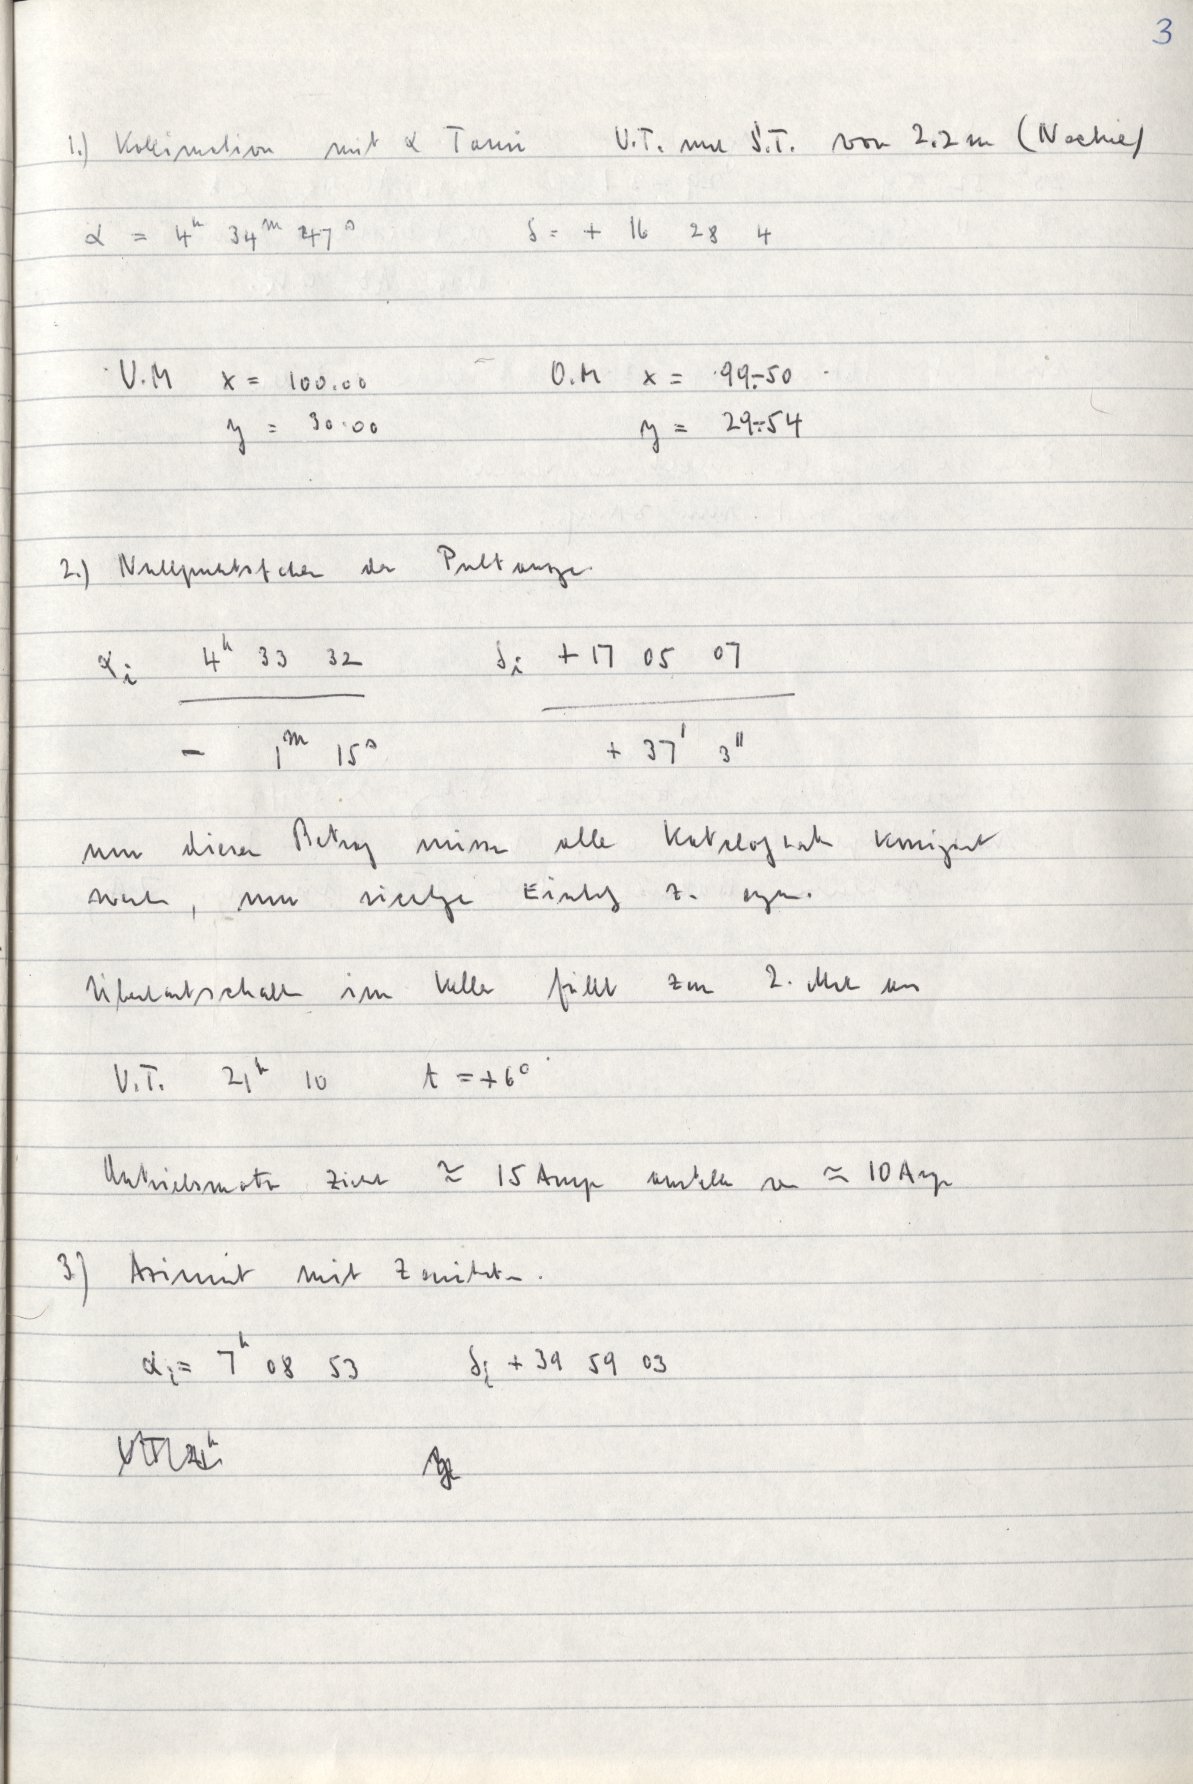 3
1.) Kollimation mit α Tauri U.T. und S.T. von 2.2 m (Nachie)
α = 4ʰ 34ᵐ 47ˢ δ = + 16 28 4
U.M x = 100.00 O.M x = 99.50
y = 30.00 y = 29.54
2.) Nullpunktsfehler der Pultanzeige
αᵢ 4ʰ 33 32 δᵢ + 17 05 07
- 1ᵐ 15ˢ + 37' 3"
um diesen Betrag müssen alle Katalogwerte korrigiert
werden, um richtige z.
Überlastschalter im Keller fällt zum 2. Mal aus
U.T. 21ʰ 10 t = +6°
Antriebsmotor zieht ≃ 15 Amp anstelle von ≃ 10 Amp
3) Azimut mit Zenitstern.
αᵢ = 7ʰ 08 53 δᵢ + 39 59 03